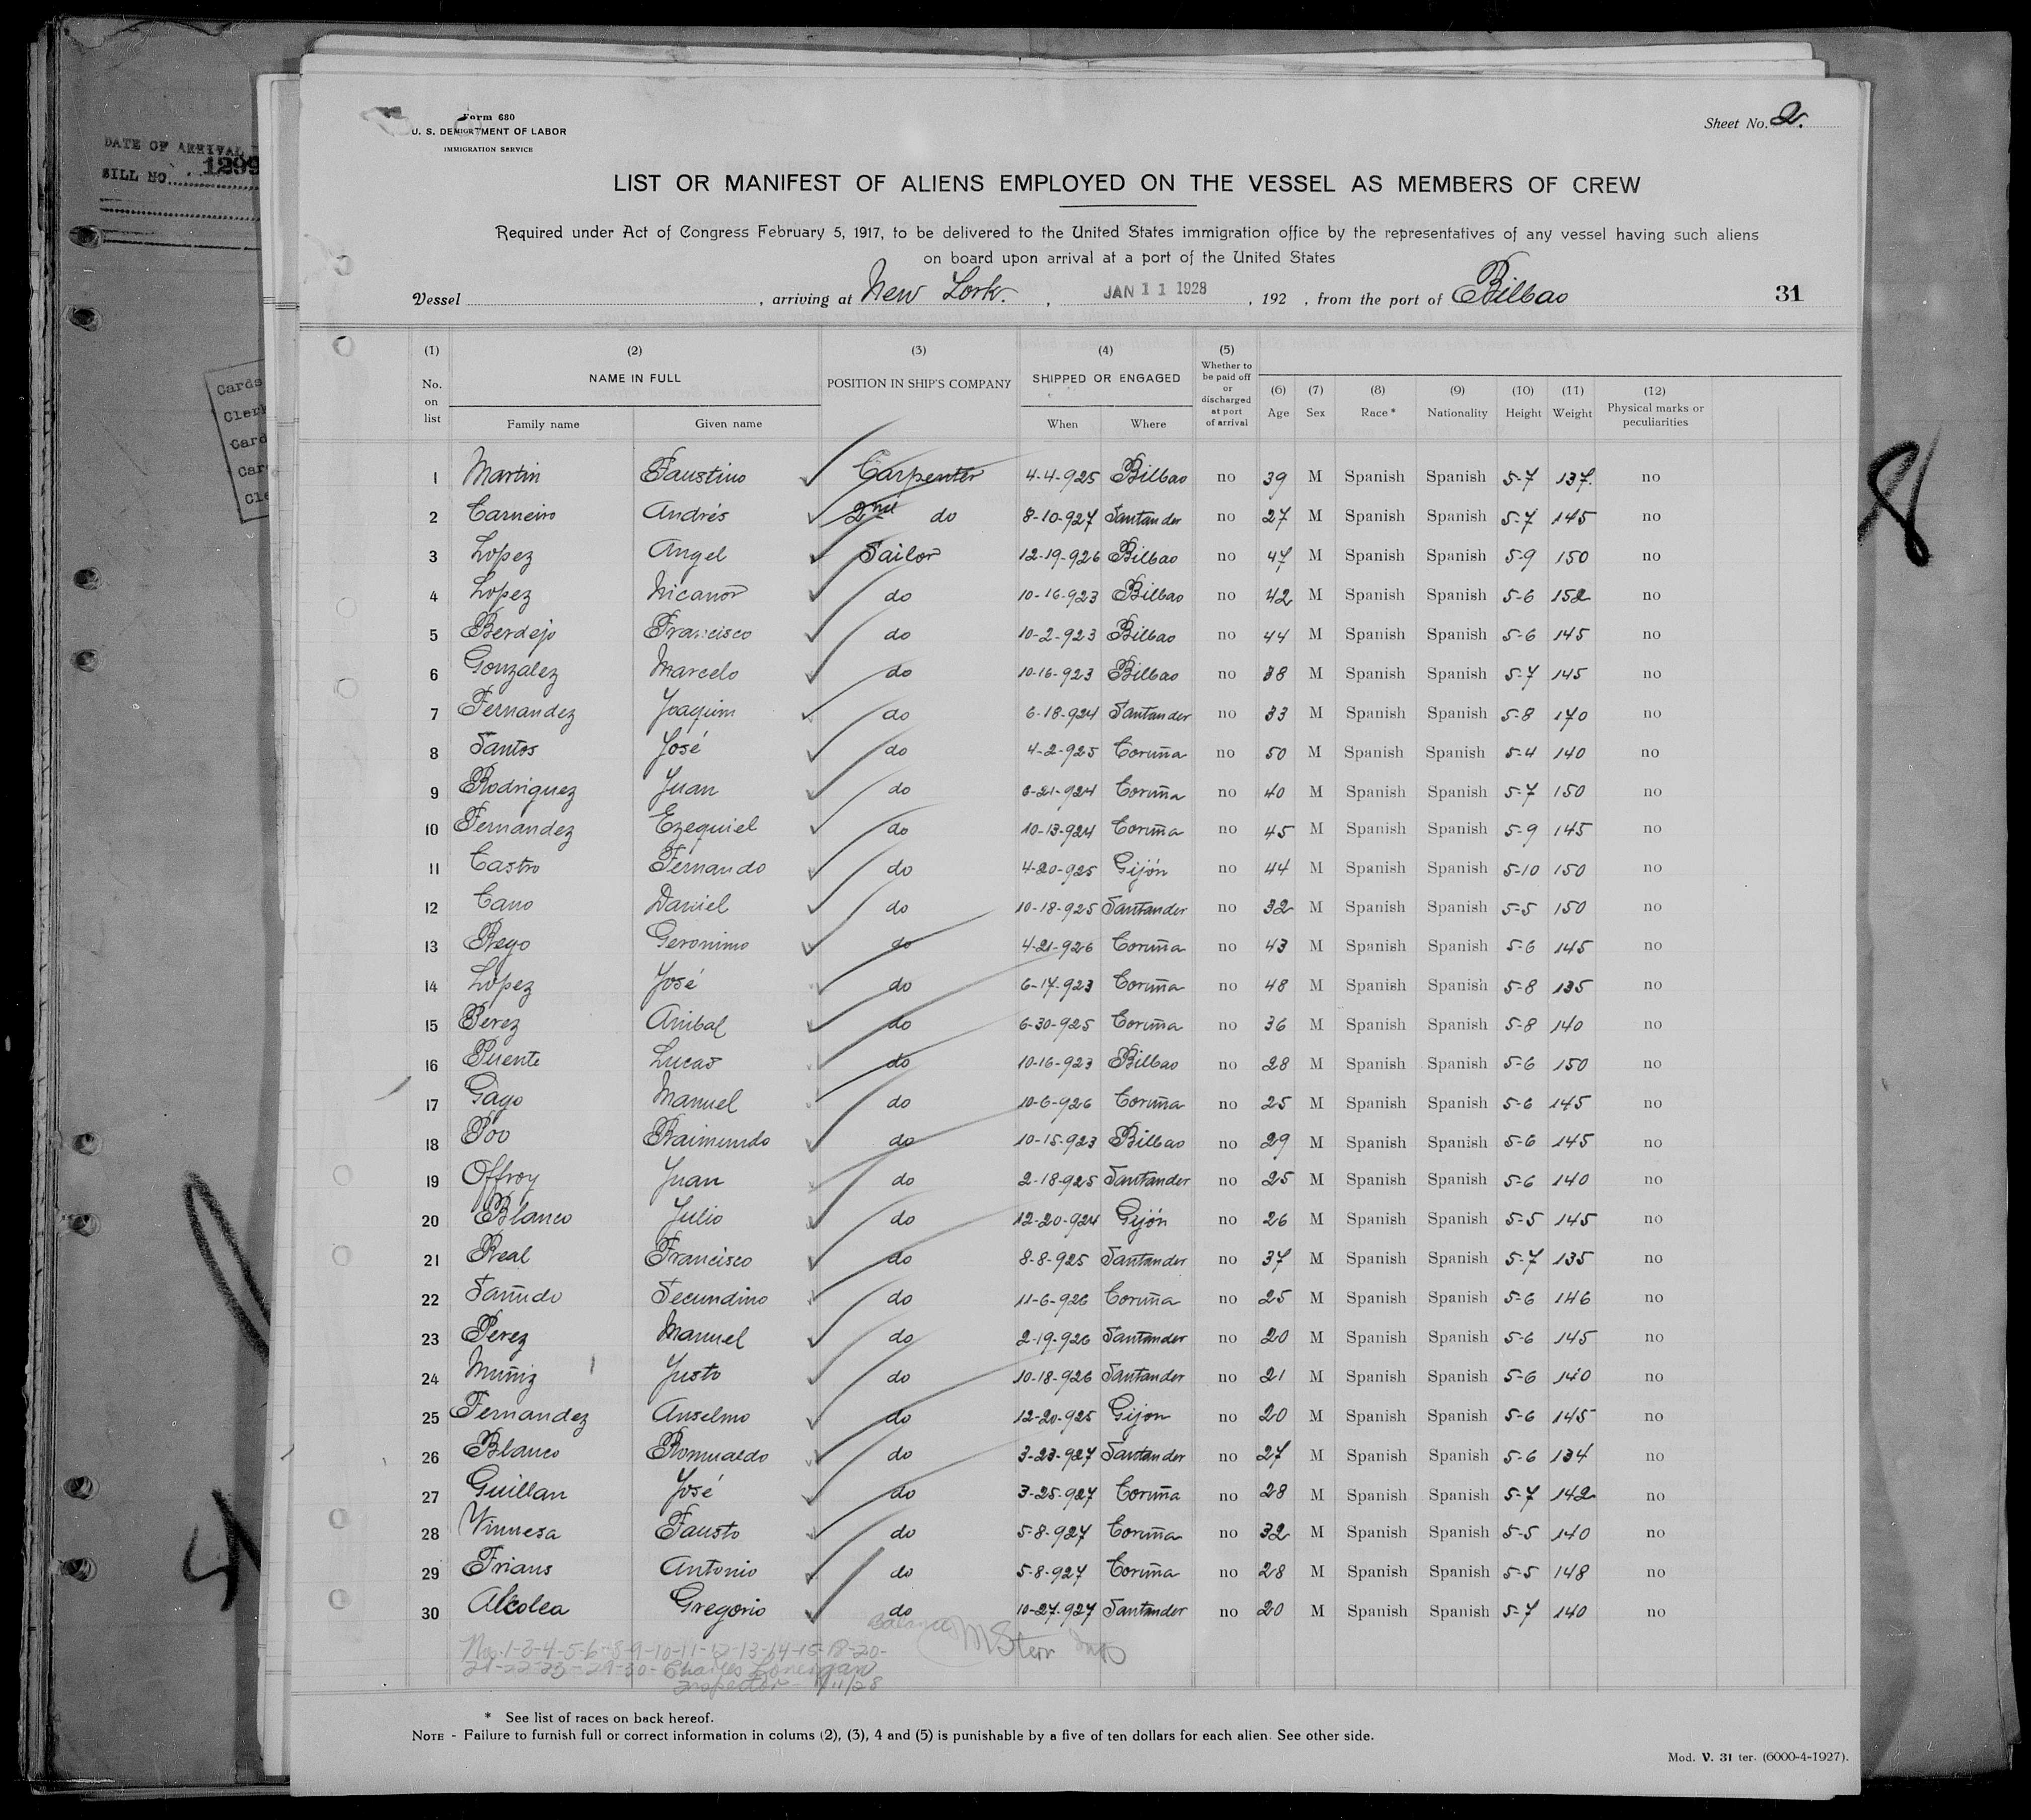 DATE OF ARRIVAL
BILL NO. 1299
Cards
Clerk
Card
Car
Cle
Form 680
U. S. DEPARTMENT OF LABOR
IMMIGRATION SERVICE
Sheet No. 2.
LIST OR MANIFEST OF ALIENS EMPLOYED ON THE VESSEL AS MEMBERS OF CREW
Required under Act of Congress February 5, 1917, to be delivered to the United States immigration office by the representatives of any vessel having such aliens
on board upon arrival at a port of the United States
Vessel , arriving at New York. , JAN 11 1928 , 192 , from the port of Bilbao 31
(1) (2) (3) (4) (5)
No. on list NAME IN FULL POSITION IN SHIP'S COMPANY SHIPPED OR ENGAGED Whether to be paid off or discharged at port of arrival (6) Age (7) Sex (8) Race * (9) Nationality (10) Height (11) Weight (12) Physical marks or peculiarities
Family name Given name When Where
1 Martin Faustino Carpenter 4-4-925 Bilbao no 39 M Spanish Spanish 5-7 137. no
2 Carneiro Andrés 2nd do 8-10-927 Santander no 27 M Spanish Spanish 5-7 145 no
3 Lopez Angel Sailor 12-19-926 Bilbao no 47 M Spanish Spanish 5-9 150 no
4 Lopez Nicanor do 10-16-923 Bilbao no 42 M Spanish Spanish 5-6 152 no
5 Berdejo Francisco do 10-2-923 Bilbao no 44 M Spanish Spanish 5-6 145 no
6 Gonzalez Marcelo do 10-16-923 Bilbao no 38 M Spanish Spanish 5-7 145 no
7 Fernandez Joaquim do 6-18-924 Santander no 33 M Spanish Spanish 5-8 170 no
8 Santos José do 4-2-925 Coruña no 50 M Spanish Spanish 5-4 140 no
9 Rodriguez Juan do 6-21-924 Coruña no 40 M Spanish Spanish 5-7 150 no
10 Fernandez Ezequiel do 10-13-924 Coruña no 45 M Spanish Spanish 5-9 145 no
11 Castro Fernando do 4-20-925 Gijón no 44 M Spanish Spanish 5-10 150 no
12 Cano Daniel do 10-18-925 Santander no 32 M Spanish Spanish 5-5 150 no
13 Rego Geronimo do 4-21-926 Coruña no 43 M Spanish Spanish 5-6 145 no
14 Lopez José do 6-17-923 Coruña no 48 M Spanish Spanish 5-8 135 no
15 Perez Anibal do 6-30-925 Coruña no 36 M Spanish Spanish 5-8 140 no
16 Puente Lucas do 10-16-923 Bilbao no 28 M Spanish Spanish 5-6 150 no
17 Gago Manuel do 10-6-926 Coruña no 25 M Spanish Spanish 5-6 145 no
18 Poo Raimundo do 10-15-923 Bilbao no 29 M Spanish Spanish 5-6 145 no
19 Offroy Juan do 2-18-925 Santander no 25 M Spanish Spanish 5-6 140 no
20 Blanco Julio do 12-20-924 Gijón no 26 M Spanish Spanish 5-5 145 no
21 Real Francisco do 8-8-925 Santander no 37 M Spanish Spanish 5-7 135 no
22 Sañudo Secundino do 11-6-926 Coruña no 25 M Spanish Spanish 5-6 146 no
23 Perez Manuel do 2-19-926 Santander no 20 M Spanish Spanish 5-6 145 no
24 Muñiz Justo do 10-18-926 Santander no 21 M Spanish Spanish 5-6 140 no
25 Fernandez Anselmo do 12-20-925 Gijon no 20 M Spanish Spanish 5-6 145 no
26 Blanco Romualdo do 3-23-927 Santander no 27 M Spanish Spanish 5-6 134 no
27 Guillan José do 3-25-927 Coruña no 28 M Spanish Spanish 5-7 142 no
28 Vinuesa Fausto do 5-8-927 Coruña no 32 M Spanish Spanish 5-5 140 no
29 Frians Antonio do 5-8-927 Coruña no 28 M Spanish Spanish 5-5 148 no
30 Alcolea Gregorio do 10-27-927 Santander no 20 M Spanish Spanish 5-7 140 no
Balance M Stern Insp
Nos. 1-3-4-5-6-8-9-10-11-12-13-14-15-18-20-
21-22-23-29-30- Charles Lonergan
Inspector 1/11/28
* See list of races on back hereof.
NOTE - Failure to furnish full or correct information in colums (2), (3), 4 and (5) is punishable by a five of ten dollars for each alien. See other side.
Mod. V. 31 ter. (6000-4-1927).
8